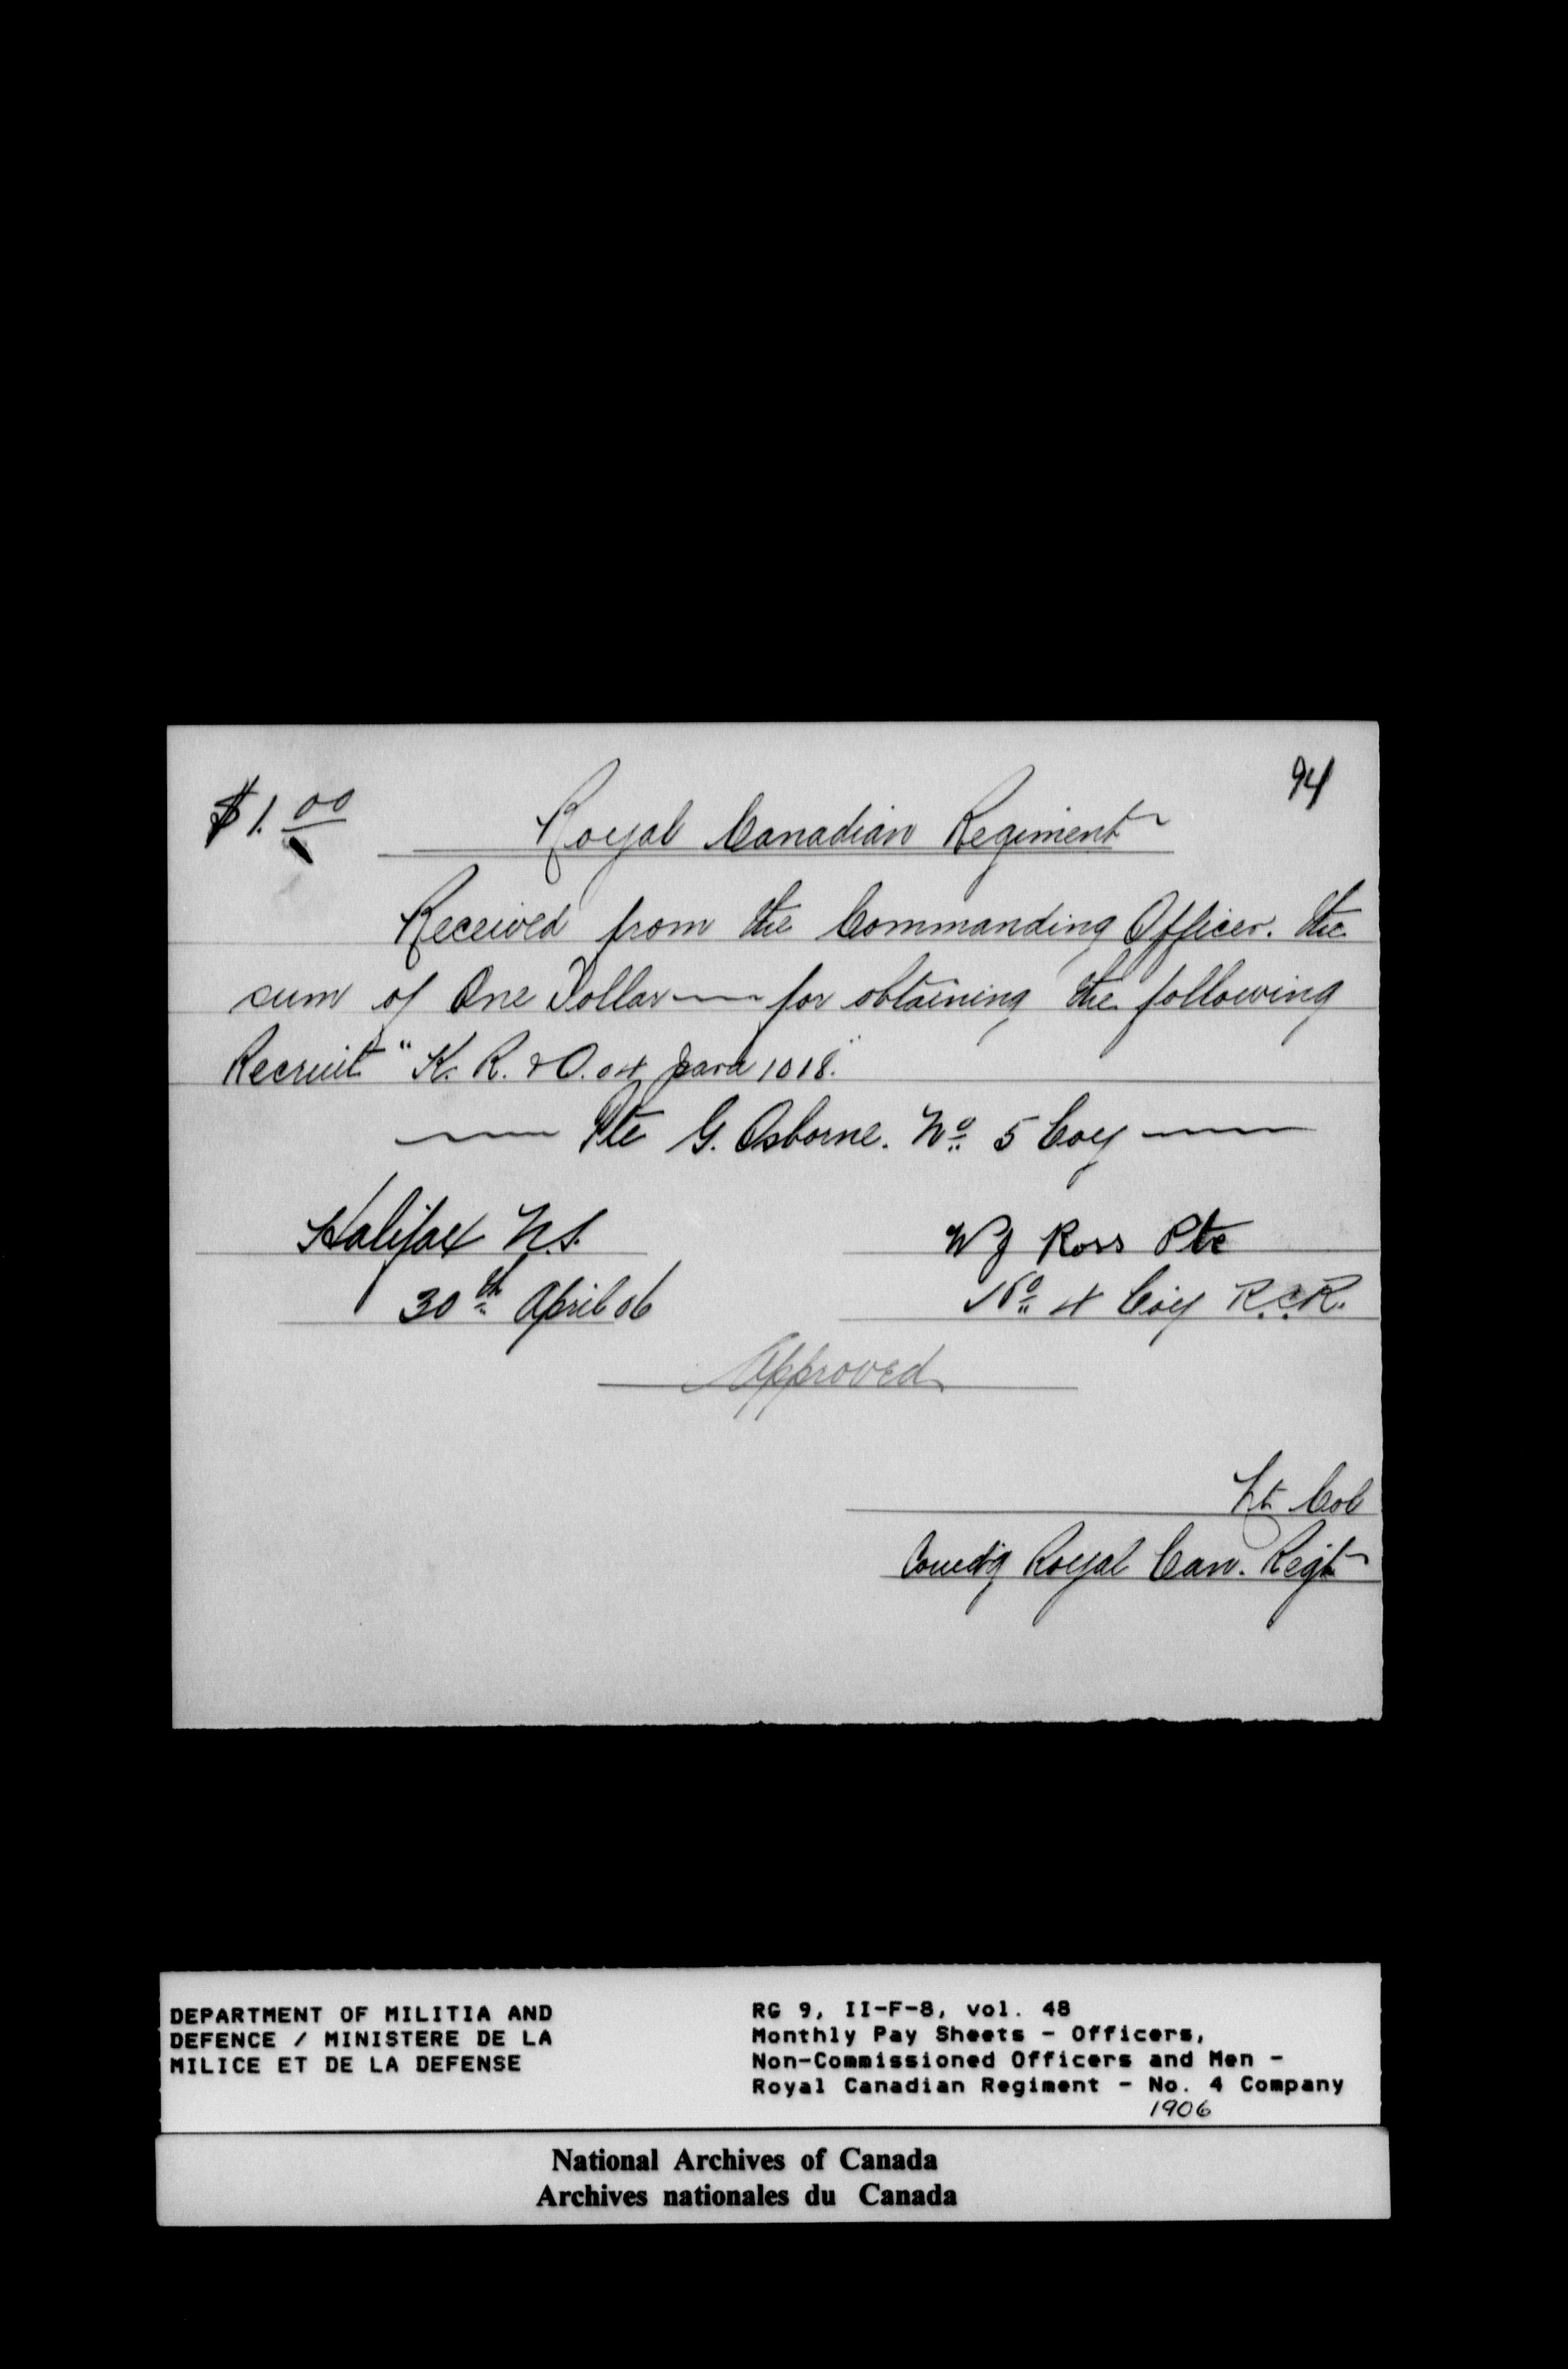 $1.00
94
Royal Canadian Regiment
Received from the Commanding Officer. the
sum of One Dollar — for obtaining the following
Recruit "K. R. & O. 04 para 1018."
— Pte G. Osborne. No 5 Coy —
Halifax N.S.
30th April 06
W J Ross Pte
No 4 Coy R.C.R.
Approved
Lt Col
Comd'g Royal Can. Regt
DEPARTMENT OF MILITIA AND
DEFENCE / MINISTERE DE LA
MILICE ET DE LA DEFENSE
RG 9, II-F-8, vol. 48
Monthly Pay Sheets - Officers,
Non-Commissioned Officers and Men -
Royal Canadian Regiment - No. 4 Company
1906
National Archives of Canada
Archives nationales du Canada